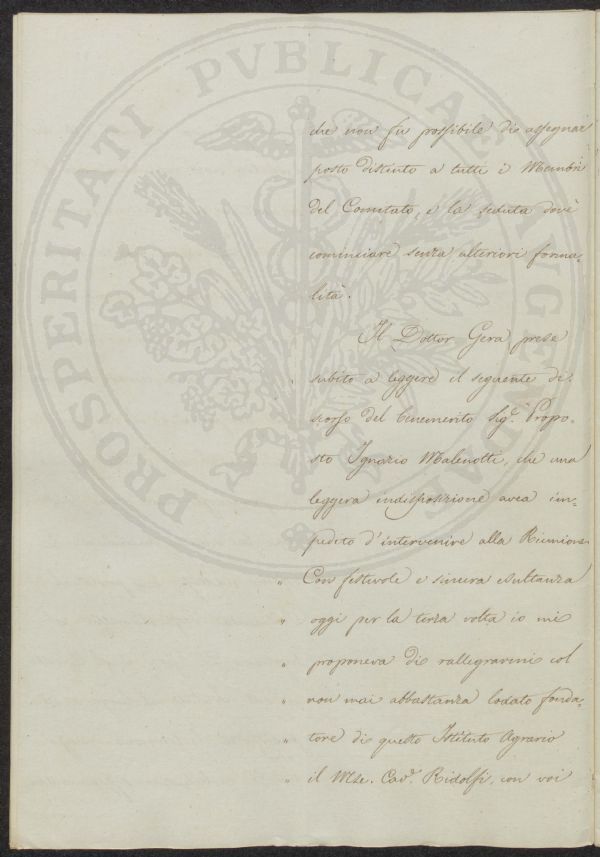 PROSPERITATI PVBLICAE AVGENDAE
che non fu possibile di assegnar
posto distinto a tutti i Membri
del Comitato, e la seduta dovè
cominciare senza alteriori forma-
lità.
Il Dottor Gera prese
subito a leggere il seguente di-
scorso del benemerito Sig.r Propo-
sto Ignazio Malenotti, che una
leggera indisposizione avea im-
pedito d'intervenire alla Riunione
„ Con festevole e sincera esultanza
„ oggi per la terza volta io mi
„ proponeva di rallegrarmi col
„ non mai abbastanza lodato fonda-
„ tore di questo Istituto Agrario
„ il Mse. Cav.r Ridolfi, con voi